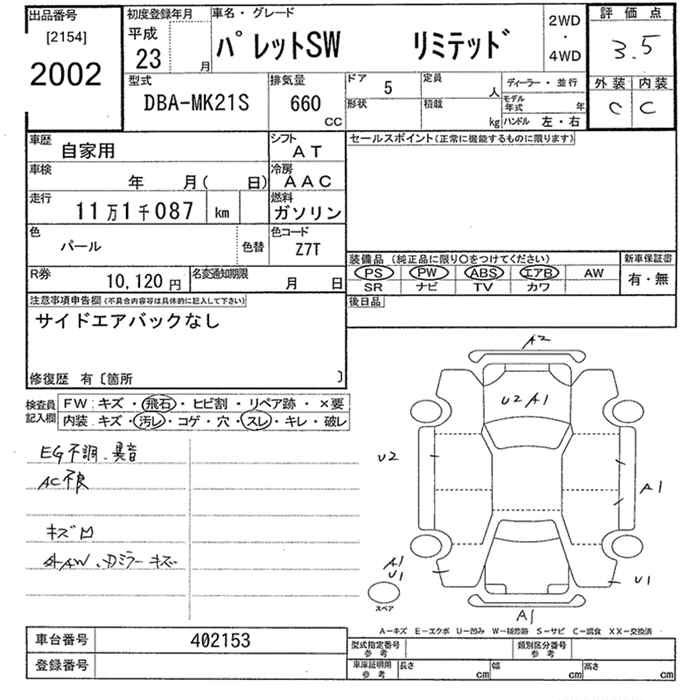 出品番号
[2154]
2002
初度登録年月
平成
23 月
車名・グレード
パレットSW リミテッド
2WD
・
4WD
評価点
3.5
外装 内装
C C
型式
DBA-MK21S
排気量
660
CC
ドア 5
形状
定員 人
積載 kg
ディーラー・並行
モデル年式 年
ハンドル 左・右
車歴 自家用
シフト AT
セールスポイント(正常に機能するものに限ります)
車検 年 月( 日)
冷房 AAC
走行 11万1千087 km
燃料 ガソリン
色 パール
色替
色コード Z7T
装備品 (純正品に限り〇をつけてください)
新車保証書
PS PW ABS エアB AW
有・無
SR ナビ TV カワ
R券 10,120 円
名変通知期限 月 日
後日品
注意事項申告欄(不具合内容等は具体的に記入して下さい)
サイドエアバックなし
修復歴 有〔箇所 〕
検査員記入欄
FW:キズ・飛石・ヒビ割・リペア跡・×要
内装:キズ・汚レ・コゲ・穴・スレ・キレ・破レ
EG不調、異音
AC不良
キズ凹
A2
U2A1
U2
A1
A1
U1
U1
A1
スペア
A－キズ E－エクボ U－凹み W－補修跡 S－サビ C－腐食 XX－交換済
車台番号 402153
登録番号
型式指定番号
参考
類別区分番号
参考
車庫証明用
参考
長さ cm 幅 cm 高さ cm